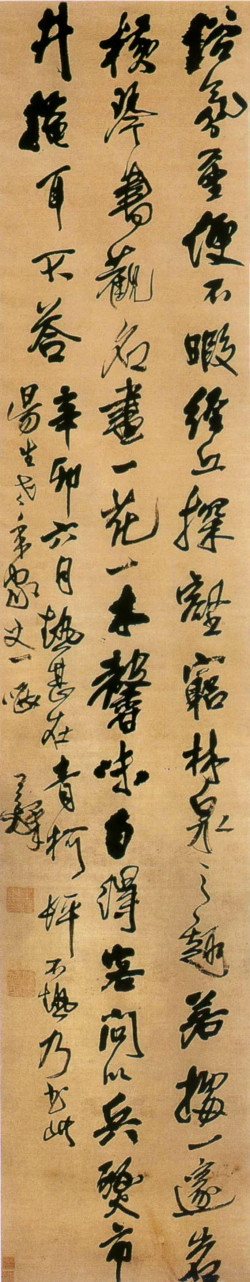 谿氣至便不暇經丘探壑窮林泉之趣若擇一邃岩
橫琴書觀名畫一花一木馨味自得客問以兵燹市
井掩耳不答
辛卯六月熱甚在青柯坪不熱乃書此
湯生老年家丈一噱 王鐸